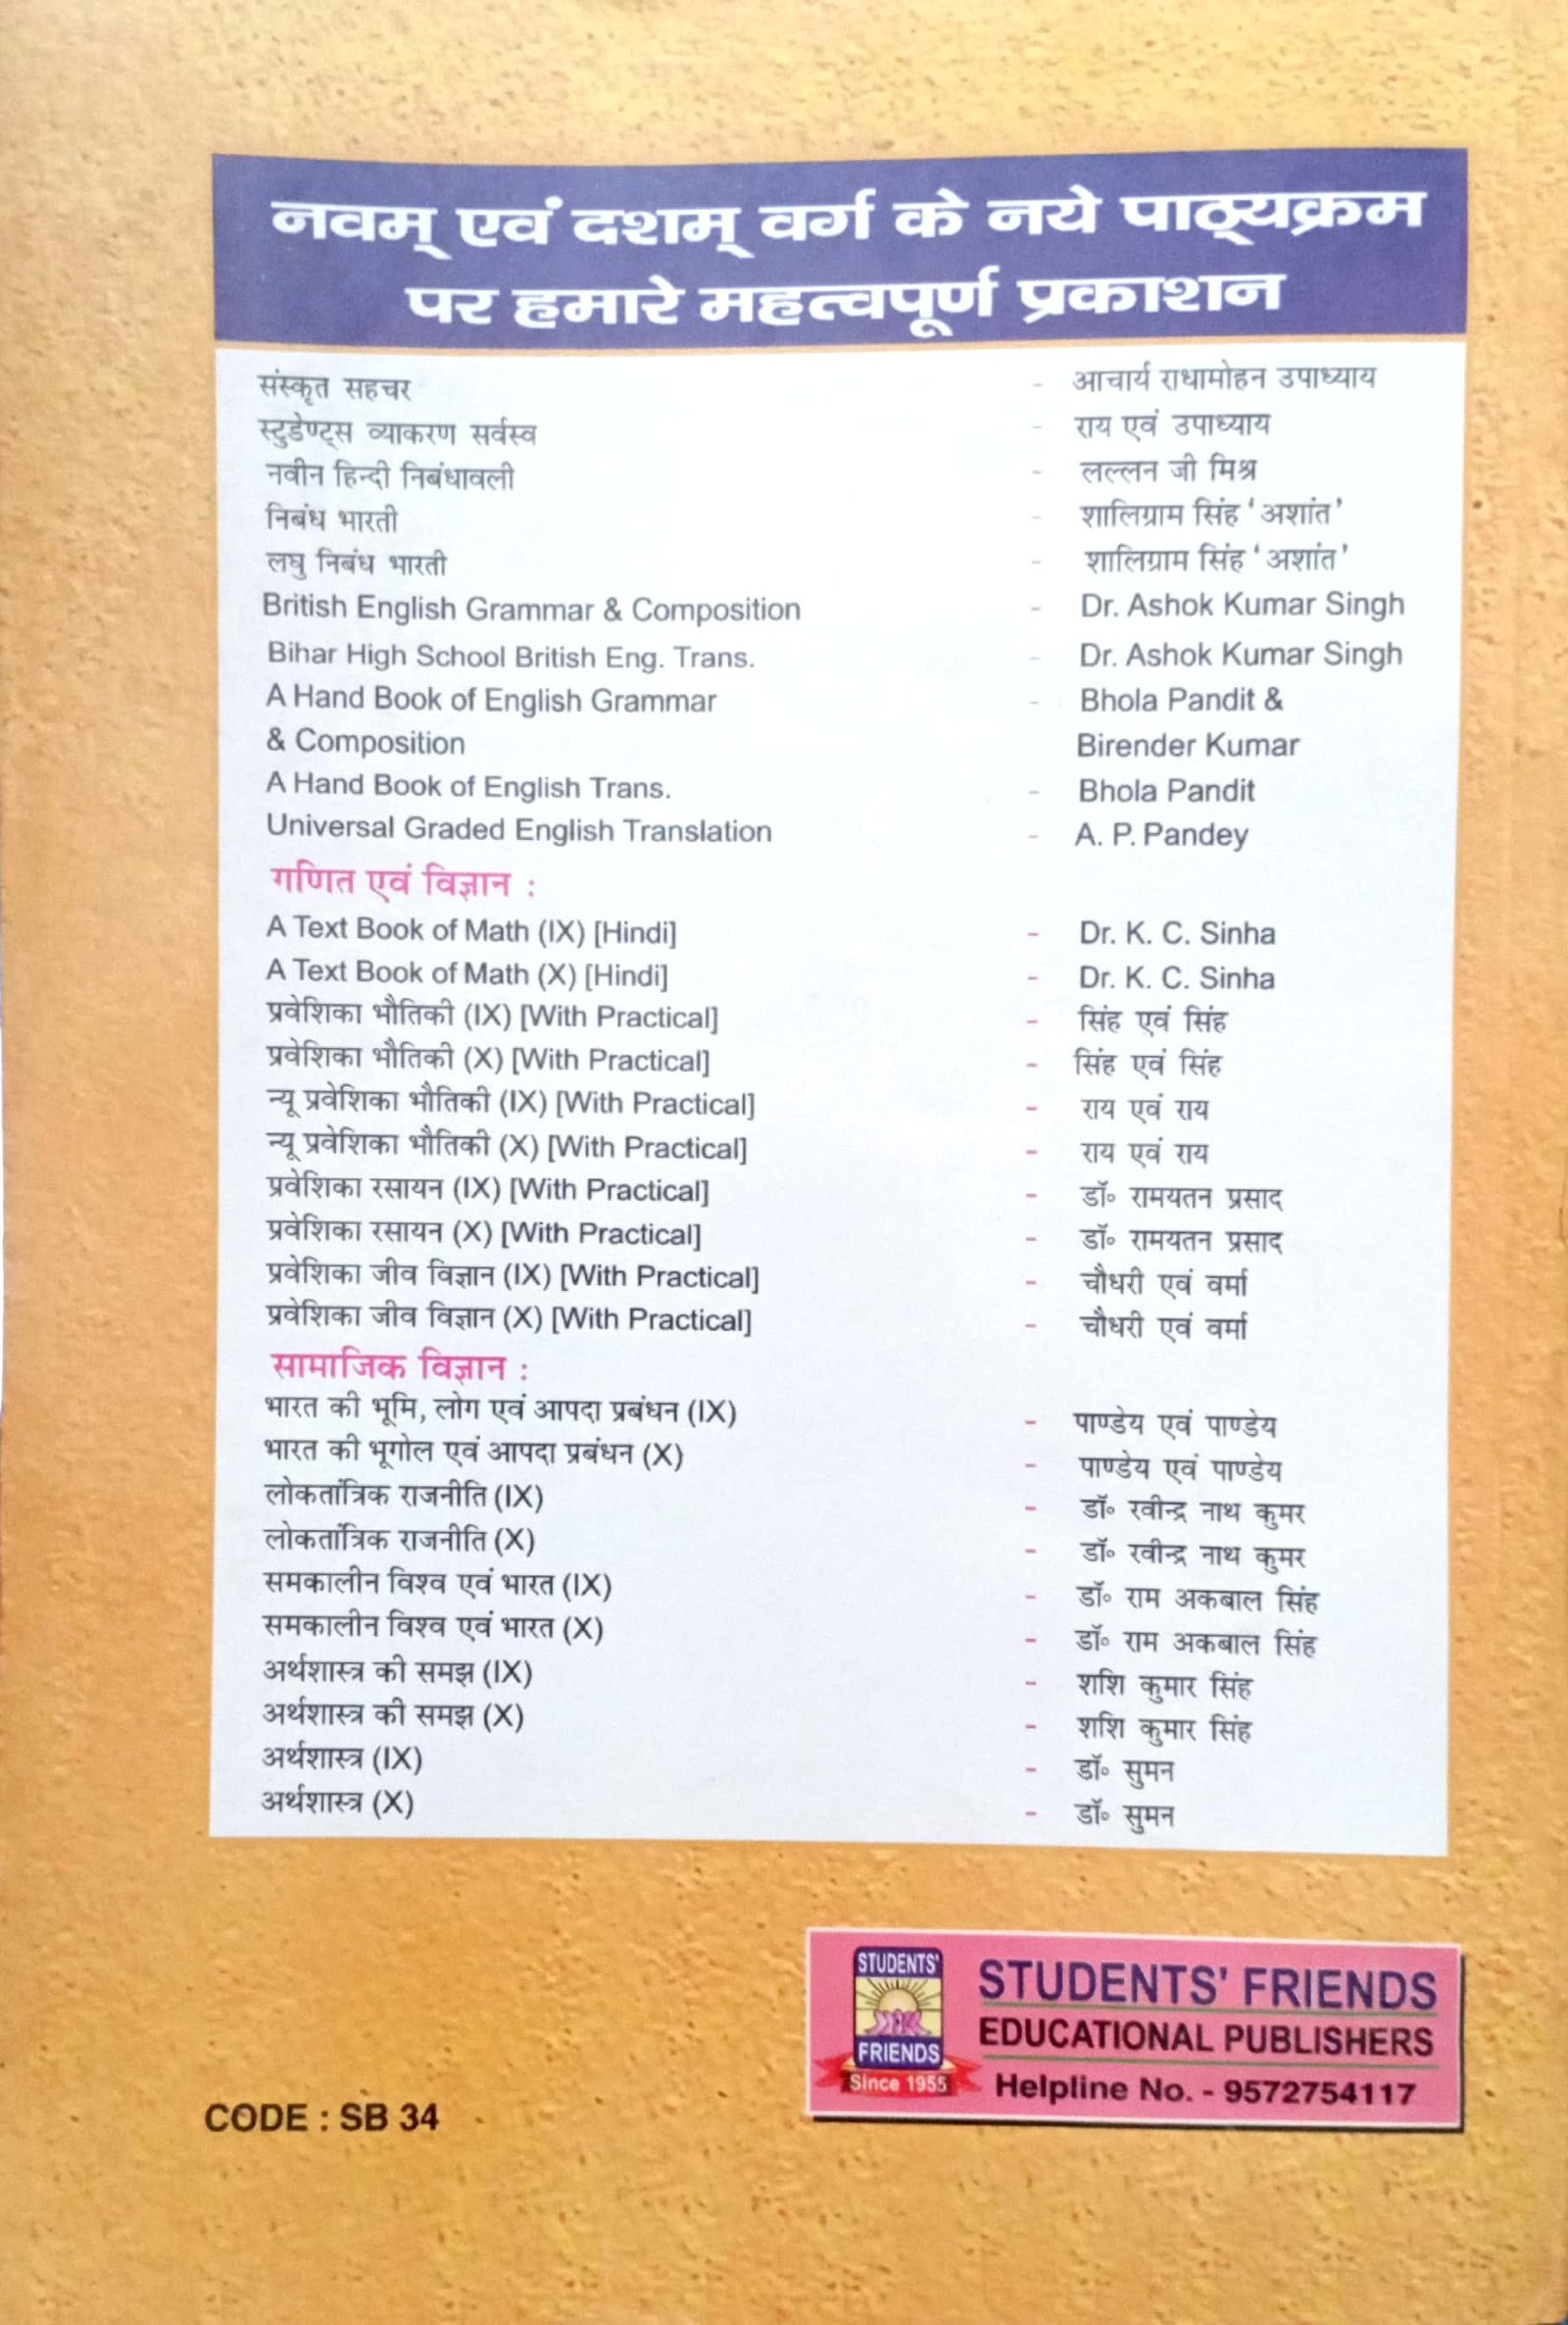 नवम् एवं दशम् वर्ग के नये पाठ्यक्रम
पर हमारे महत्वपूर्ण प्रकाशन
संस्कृत सहचर - आचार्य राधामोहन उपाध्याय
स्टुडेण्ट्स व्याकरण सर्वस्व - राय एवं उपाध्याय
नवीन हिन्दी निबंधावली - लल्लन जी मिश्र
निबंध भारती - शालिग्राम सिंह ‘अशांत’
लघु निबंध भारती - शालिग्राम सिंह ‘अशांत’
British English Grammar & Composition - Dr. Ashok Kumar Singh
Bihar High School British Eng. Trans. - Dr. Ashok Kumar Singh
A Hand Book of English Grammar - Bhola Pandit &
& Composition Birender Kumar
A Hand Book of English Trans. - Bhola Pandit
Universal Graded English Translation - A. P. Pandey
गणित एवं विज्ञान :
A Text Book of Math (IX) [Hindi] - Dr. K. C. Sinha
A Text Book of Math (X) [Hindi] - Dr. K. C. Sinha
प्रवेशिका भौतिकी (IX) [With Practical] - सिंह एवं सिंह
प्रवेशिका भौतिकी (X) [With Practical] - सिंह एवं सिंह
न्यू प्रवेशिका भौतिकी (IX) [With Practical] - राय एवं राय
न्यू प्रवेशिका भौतिकी (X) [With Practical] - राय एवं राय
प्रवेशिका रसायन (IX) [With Practical] - डॉ॰ रामयतन प्रसाद
प्रवेशिका रसायन (X) [With Practical] - डॉ॰ रामयतन प्रसाद
प्रवेशिका जीव विज्ञान (IX) [With Practical] - चौधरी एवं वर्मा
प्रवेशिका जीव विज्ञान (X) [With Practical] - चौधरी एवं वर्मा
सामाजिक विज्ञान :
भारत की भूमि, लोग एवं आपदा प्रबंधन (IX) - पाण्डेय एवं पाण्डेय
भारत की भूगोल एवं आपदा प्रबंधन (X) - पाण्डेय एवं पाण्डेय
लोकतांत्रिक राजनीति (IX) - डॉ॰ रवीन्द्र नाथ कुमर
लोकतांत्रिक राजनीति (X) - डॉ॰ रवीन्द्र नाथ कुमर
समकालीन विश्व एवं भारत (IX) - डॉ॰ राम अकबाल सिंह
समकालीन विश्व एवं भारत (X) - डॉ॰ राम अकबाल सिंह
अर्थशास्त्र की समझ (IX) - शशि कुमार सिंह
अर्थशास्त्र की समझ (X) - शशि कुमार सिंह
अर्थशास्त्र (IX) - डॉ॰ सुमन
अर्थशास्त्र (X) - डॉ॰ सुमन
STUDENTS'
FRIENDS
Since 1955
STUDENTS' FRIENDS
EDUCATIONAL PUBLISHERS
Helpline No. - 9572754117
CODE : SB 34